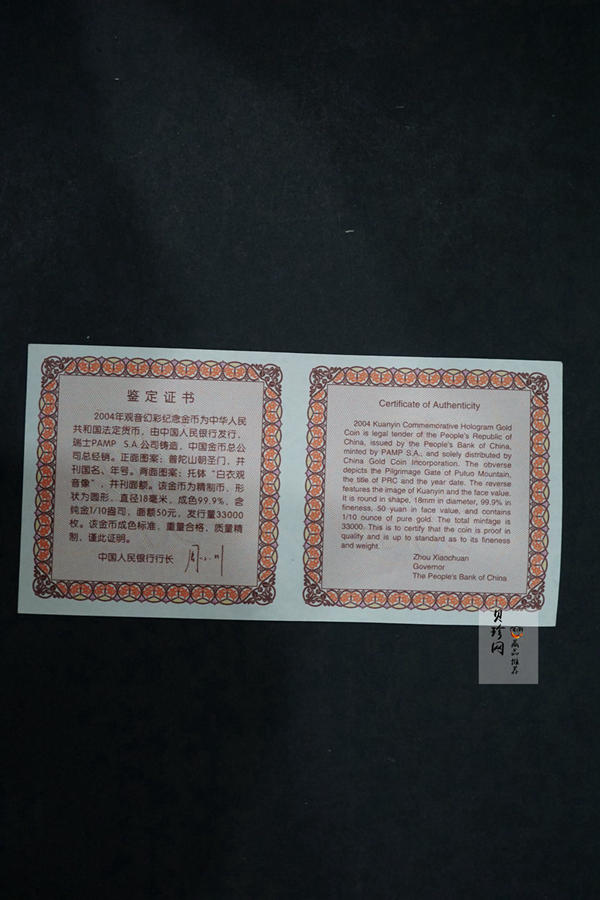 鉴定证书
2004年观音幻彩纪念金币为中华人民
共和国法定货币。由中国人民银行发行，
瑞士PAMP S.A.公司铸造，中国金币总公
司总经销。正面图案：普陀山朝圣门，并
刊国名、年号。背面图案：托钵“白衣观
音像”，并刊面额。该金币为精制币，形
状为圆形，直径18毫米，成色99.9%，含
纯金1/10盎司，面额50元，发行量33000
枚。该金币成色标准，重量合格，质量精
制，谨此证明。
中国人民银行行长
Certificate of Authenticity
2004 Kuanyin Commemorative Hologram Gold
Coin is legal tender of the People's Republic of
China, issued by the People's Bank of China,
minted by PAMP S.A., and solely distributed by
China Gold Coin Incorporation. The obverse
depicts the Pilgrimage Gate of Putuo Mountain,
the title of PRC and the year date. The reverse
features the image of Kuanyin and the face value.
It is round in shape, 18mm in diameter, 99.9% in
fineness, 50 yuan in face value, and contains
1/10 ounce of pure gold. The total mintage is
33000. This is to certify that the coin is proof in
quality and is up to standard as to its fineness
and weight.
Zhou Xiaochuan
Governor
The People's Bank of China
贝珍网
藏品推荐